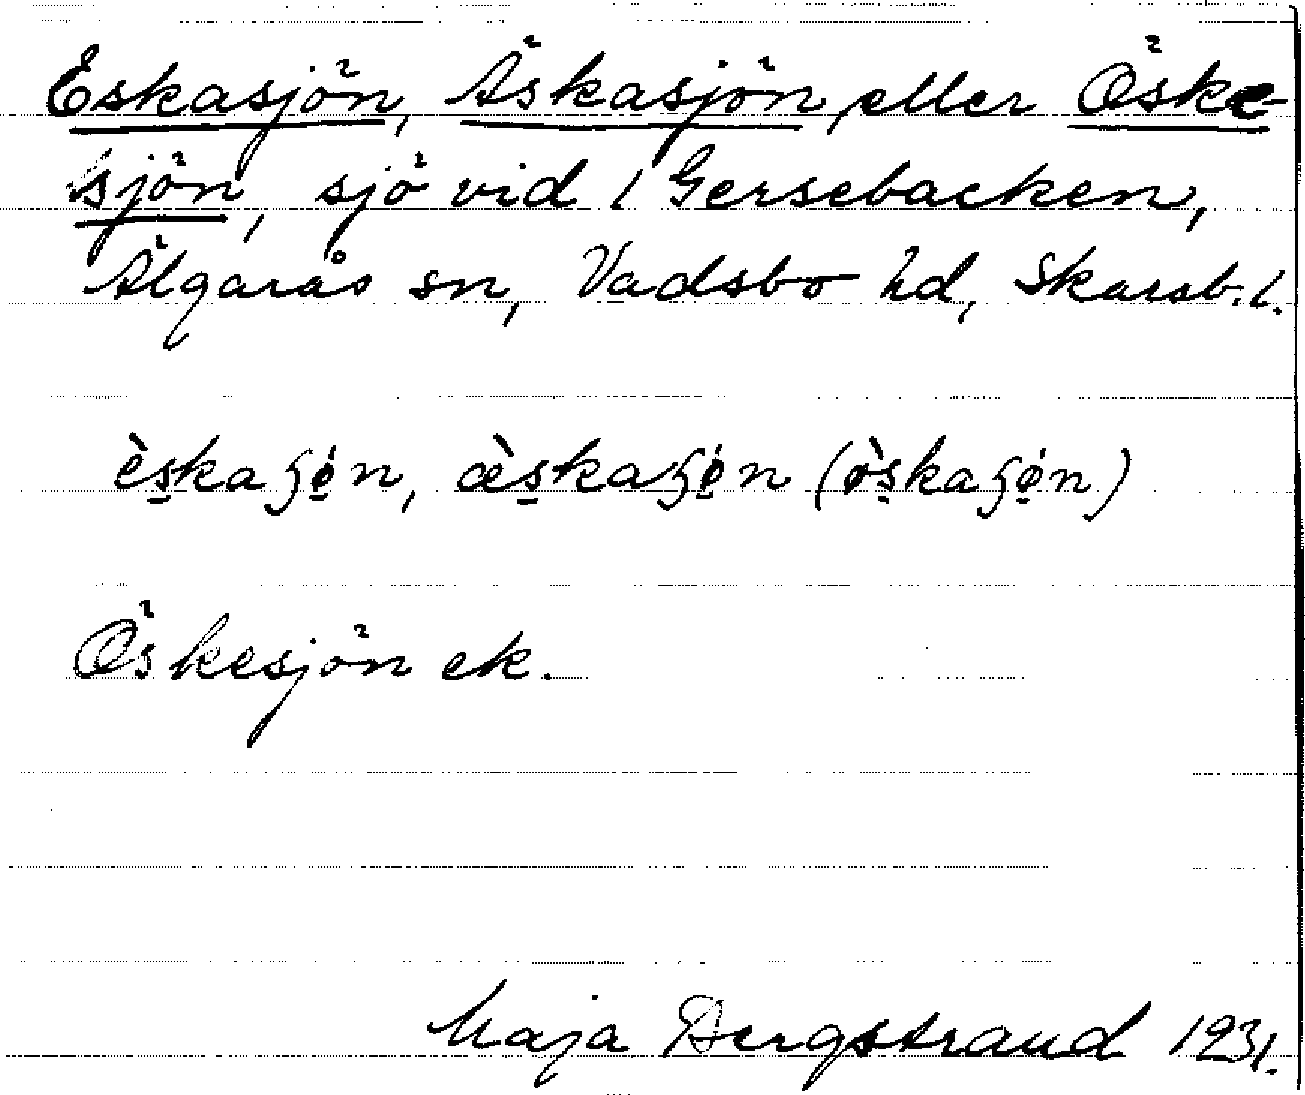 Eskasjön, Äskasjön, eller Öske-
sjön, sjö vid l Gersebacken,
Älgarås sn, Vadsbo hd, Skarab. l.
èska ʃǿn, æ̀skaʃǿn (ø̀skaʃǿn)
Öskesjön ek.
Maja Bergstrand 1931.